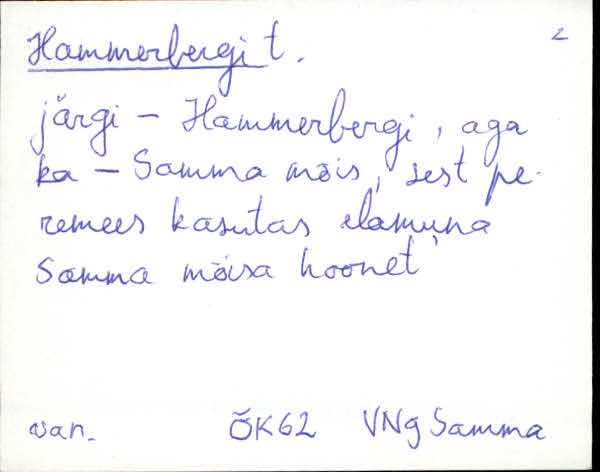 Hammerbergi t. 2
järgi - Hammerbergi, aga
ka - Samma mõis, sest pe-
remees kasutas elamuna
Samma mõisa hoonet
van. ÕK62 VNg Samma